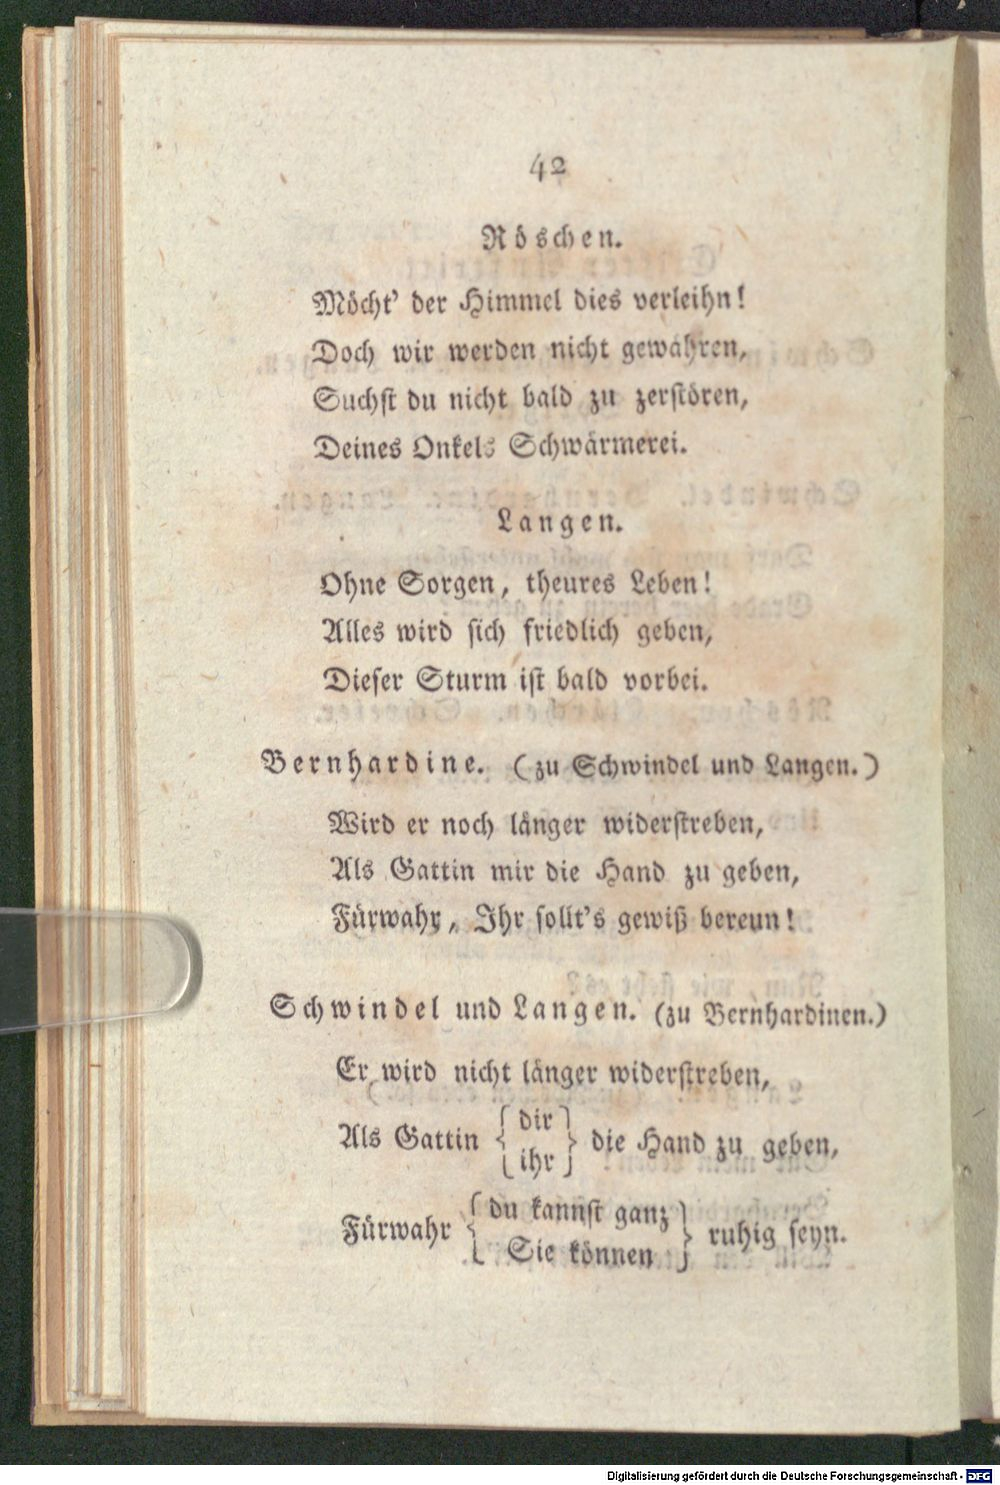 42
Röschen.
Möcht' der Himmel dies verleihn!
Doch wir werden nicht gewähren,
Suchst du nicht bald zu zerstören,
Deines Onkels Schwärmerei.
Langen.
Ohne Sorgen, theures Leben!
Alles wird sich friedlich geben,
Dieser Sturm ist bald vorbei.
Bernhardine. (zu Schwindel und Langen.)
Wird er noch länger widerstreben,
Als Gattin mir die Hand zu geben,
Fürwahr, Ihr sollt's gewiß bereun!
Schwindel und Langen. (zu Bernhardinen.)
Er wird nicht länger widerstreben,
Als Gattin { dir / ihr } die Hand zu geben,
Fürwahr { du kannst ganz / Sie können } ruhig seyn.
Digitalisierung gefördert durch die Deutsche Forschungsgemeinschaft - DFG